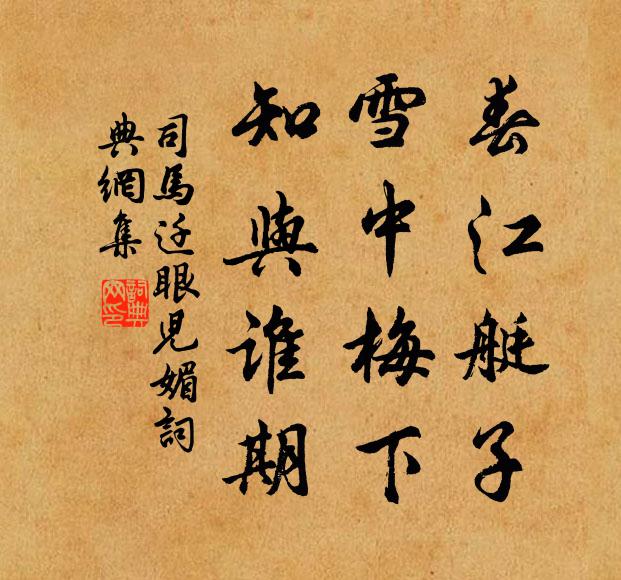 春江艇子
雪中梅下
知與誰期
司馬迁眼兒媚詞
典網集
詞典
网印